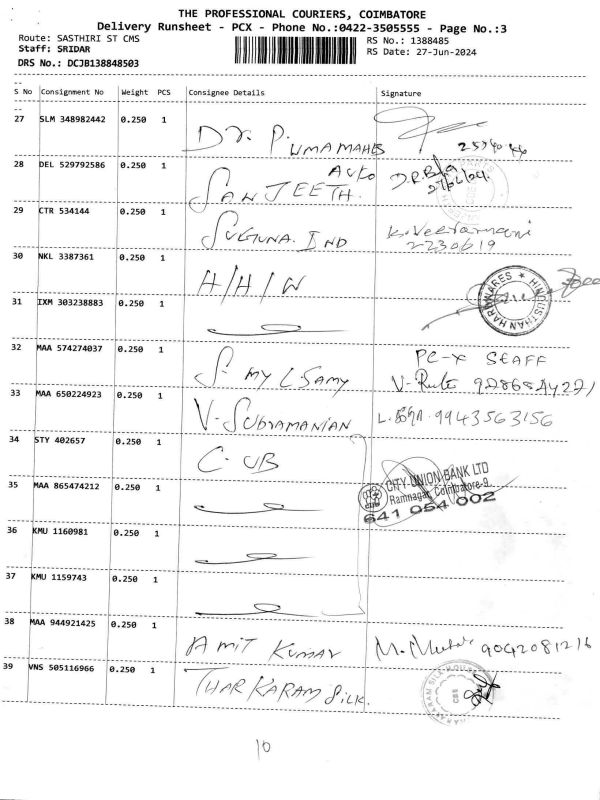 THE PROFESSIONAL COURIERS, COIMBATORE
Delivery Runsheet - PCX - Phone No.:0422-3505555 - Page No.:3
Route: SASTHIRI ST CMS
Staff: SRIDAR
DRS No.: DCJB138848503
RS No.: 1388485
RS Date: 27-Jun-2024
S No Consignment No Weight PCS Consignee Details Signature
27 SLM 348982442 0.250 1 Dr. P. UMAMAHES
28 DEL 529792586 0.250 1 SANJEETH. Auto
27/6/24
29 CTR 534144 0.250 1 SUGUNA. IND K. Veeramani
2230619
30 NKL 3387361 0.250 1 H/H/W
HINDUSTHAN HARDWARES
31 IXM 303238883 0.250 1
32 MAA 574274037 0.250 1 S. MYLSAMY PC-X STAFF
V-Rute
33 MAA 650224923 0.250 1 V-SUBRAMANIAN L. 9943563156
34 STY 402657 0.250 1 C-UB
35 MAA 865474212 0.250 1
CITY UNION BANK LTD
Ramnagar, Coimbatore-9.
641 054 002
36 KMU 1160981 0.250 1
37 KMU 1159743 0.250 1
38 MAA 944921425 0.250 1 AMIT KUMAR M. 9042081216
39 VNS 505116966 0.250 1 THARKARAM SILK.
CBE
10